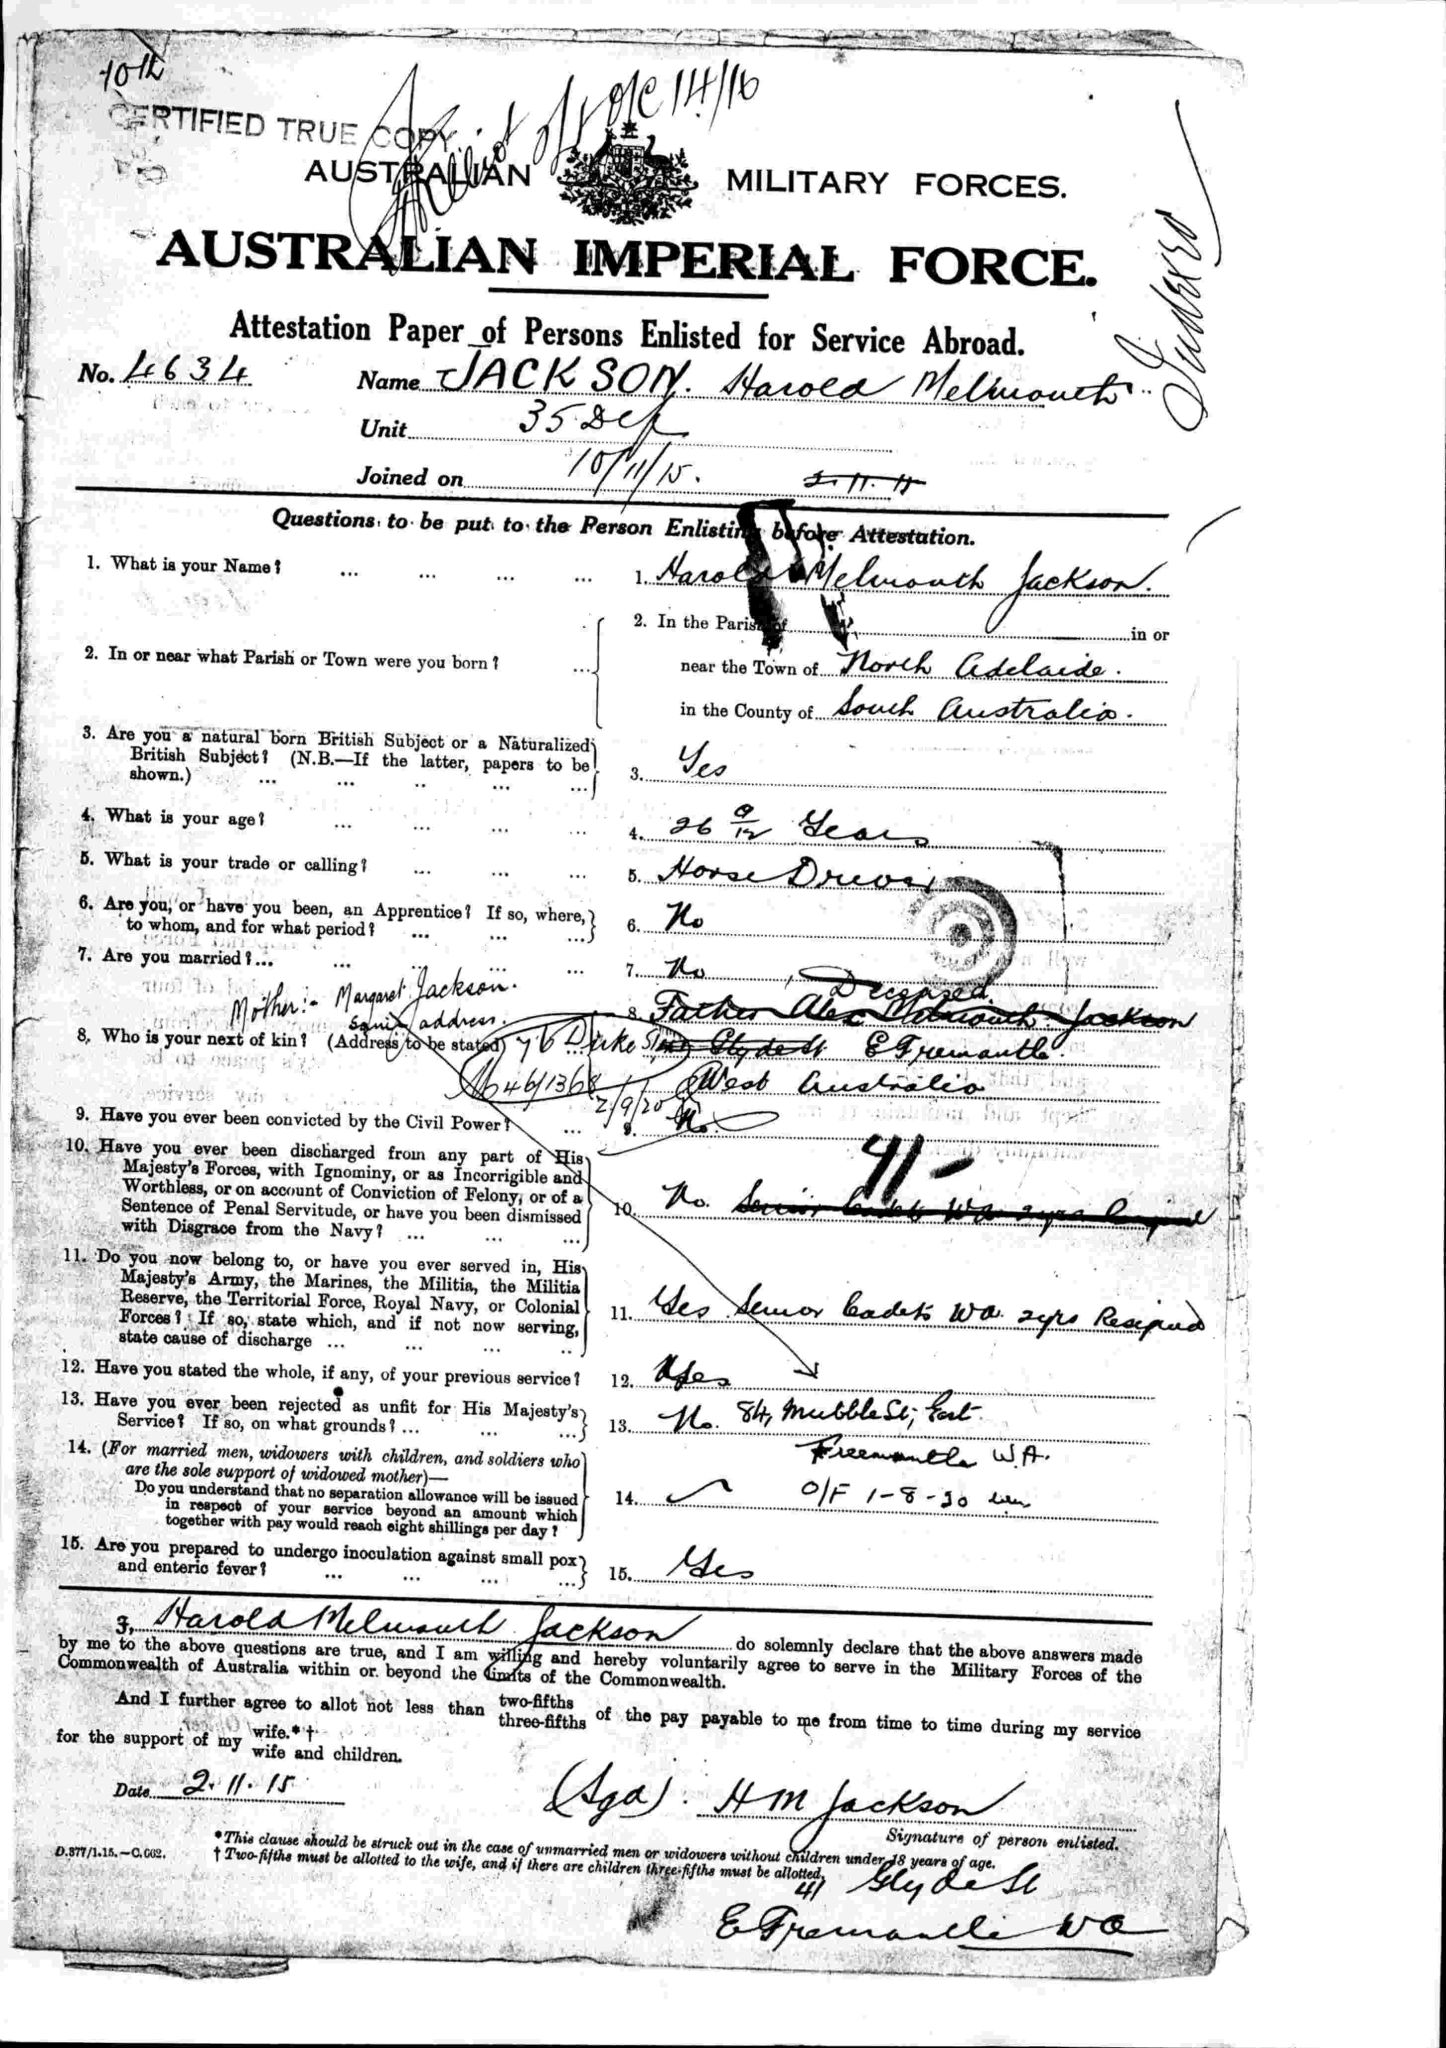 10th
CERTIFIED TRUE COPY
14/16
AUSTRALIAN MILITARY FORCES.
AUSTRALIAN IMPERIAL FORCE.
Attestation Paper of Persons Enlisted for Service Abroad.
No. 4634 Name JACKSON. Harold Melmouth
Unit 35 Dep
Joined on 10/11/15. 2.11.15
Questions to be put to the Person Enlisting before Attestation.
1. What is your Name? ... ... ... ... 1. Harold Melmouth Jackson.
2. In or near what Parish or Town were you born? ... 2. In the Parish of in or
near the Town of North Adelaide.
in the County of South Australia.
3. Are you a natural born British Subject or a Naturalized
British Subject? (N.B.—If the latter, papers to be
shown.) ... ... .. ... ... 3. Yes
4. What is your age? ... ... ... ... 4. 26 9/12 Years
5. What is your trade or calling? ... ... ... 5. Horse Driver
6. Are you, or have you been, an Apprentice? If so, where,
to whom, and for what period? ... ... ... 6. No
7. Are you married?... ... ... ... ... 7. No
Deceased.
Mother:- Margaret Jackson.
Same address.
8. Father Alex Melmouth Jackson
8. Who is your next of kin? (Address to be stated) 76 Duke St Glyde St E Fremantle.
46/1368 West Australia
2/9/20
9. Have you ever been convicted by the Civil Power? ... 9. No.
41-
10. Have you ever been discharged from any part of His
Majesty's Forces, with Ignominy, or as Incorrigible and
Worthless, or on account of Conviction of Felony, or of a
Sentence of Penal Servitude, or have you been dismissed
with Disgrace from the Navy? ... ... ... 10. No. Senior Cadets WA 2yrs Resigned
11. Do you now belong to, or have you ever served in, His
Majesty's Army, the Marines, the Militia, the Militia
Reserve, the Territorial Force, Royal Navy, or Colonial
Forces? If so, state which, and if not now serving,
state cause of discharge ... ... ... .. 11. Yes Senior Cadets WA. 2yrs Resigned
12. Have you stated the whole, if any, of your previous service? 12. Yes
13. Have you ever been rejected as unfit for His Majesty's
Service? If so, on what grounds? ... ... ... 13. No. 84, St, East
Freemantle W.A.
14. (For married men, widowers with children, and soldiers who
are the sole support of widowed mother)—
Do you understand that no separation allowance will be issued
in respect of your service beyond an amount which
together with pay would reach eight shillings per day? 14. O/F 1-8-20
15. Are you prepared to undergo inoculation against small pox
and enteric fever? ... ... ... ... 15. Yes
I, Harold Melmouth Jackson do solemnly declare that the above answers made
by me to the above questions are true, and I am willing and hereby voluntarily agree to serve in the Military Forces of the
Commonwealth of Australia within or beyond the limits of the Commonwealth.
And I further agree to allot not less than two-fifths three-fifths of the pay payable to me from time to time during my service
for the support of my wife.*† wife and children.
Date 2.11.15 (Sgd). H M Jackson
Signature of person enlisted.
*This clause should be struck out in the case of unmarried men or widowers without children under 18 years of age.
D.377/1.15.—C.662. † Two-fifths must be allotted to the wife, and if there are children three-fifths must be allotted.
41 Glyde St
E Fremantle WA